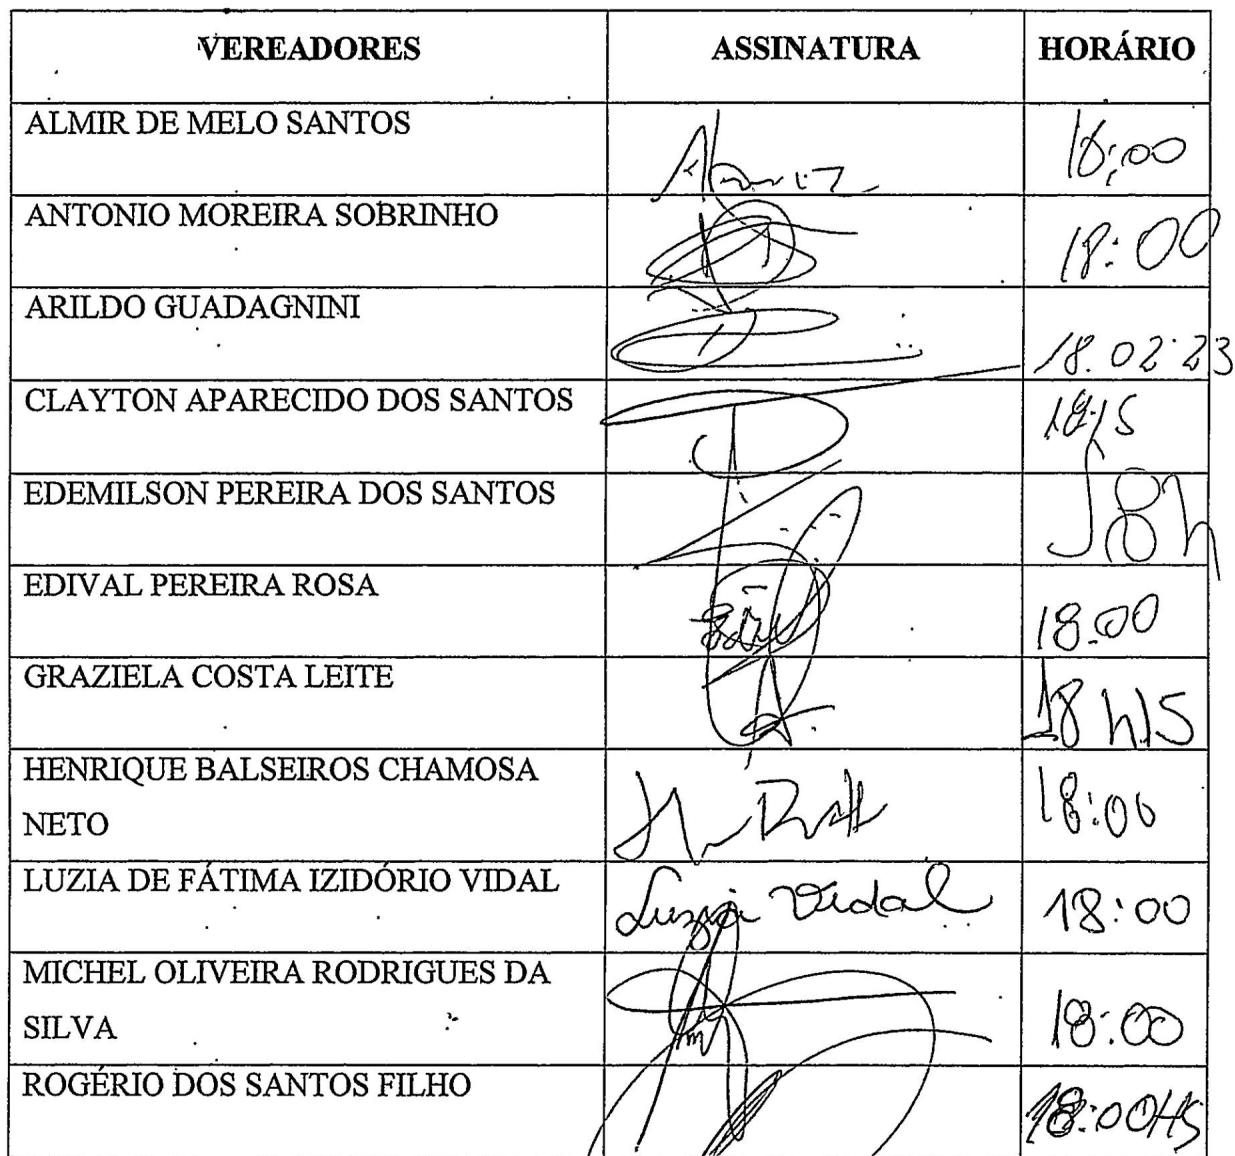 VEREADORES ASSINATURA HORÁRIO
ALMIR DE MELO SANTOS 18:00
ANTONIO MOREIRA SOBRINHO 18:00
ARILDO GUADAGNINI 18.02.23
CLAYTON APARECIDO DOS SANTOS 18:15
EDEMILSON PEREIRA DOS SANTOS 18h
EDIVAL PEREIRA ROSA 18.00
GRAZIELA COSTA LEITE 18h15
HENRIQUE BALSEIROS CHAMOSA 18:00
NETO
LUZIA DE FÁTIMA IZIDÓRIO VIDAL Luzia Vidal 18:00
MICHEL OLIVEIRA RODRIGUES DA
SILVA 18:00
ROGÉRIO DOS SANTOS FILHO 18:00HS